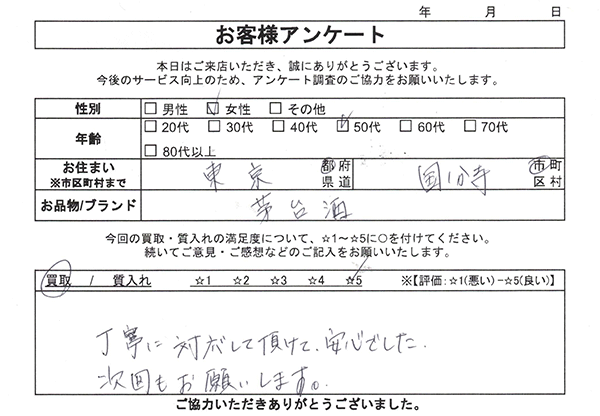 年 月 日
お客様アンケート
本日はご来店いただき、誠にありがとうございます。
今後のサービス向上のため、アンケート調査のご協力をお願いいたします。
性別 □ 男性 ☑ 女性 □ その他
年齢 □ 20代 □ 30代 □ 40代 ☑ 50代 □ 60代 □ 70代
□ 80代以上
お住まい 東京 都府 国分寺 市町
※市区町村まで 県道 区村
お品物/ブランド 茅台酒
今回の買取・質入れの満足度について、☆1~☆5に○を付けてください。
続いてご意見・ご感想などのご記入をお願いいたします。
買取 / 質入れ ☆1 ☆2 ☆3 ☆4 ☆5 ※【評価:☆1(悪い)-☆5(良い)】
丁寧に対応して頂けて、安心でした。
次回もお願いします。
ご協力いただきありがとうございました。